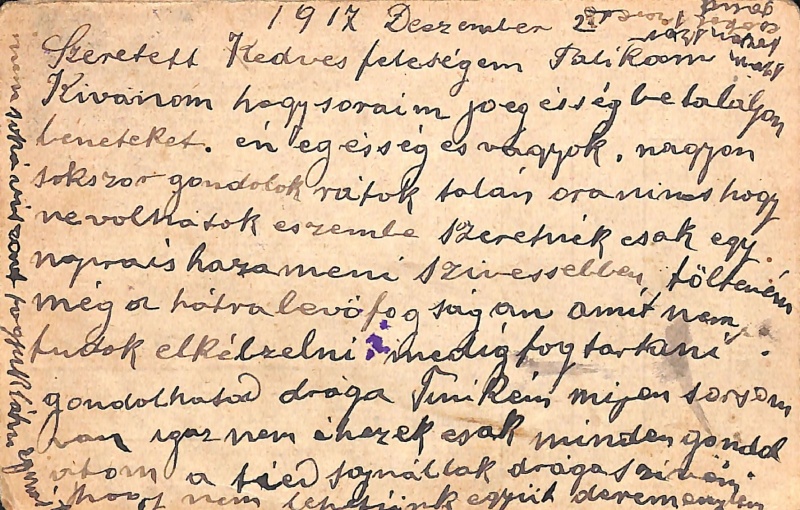 1917 Deszember 2
Szeretett Kedves feleségem
Kivánom hogy soraim jo egésségbe talaljon
béneteket. én egésséges vagyok, nagyon
sokszor gondolok rátok talán ora nincs hogy
ne volnátok eszembe szeretnék csak egy
naprais haza meni szivessebben tölteném
még a hátra levő fogságan amit nem
tudok elkébzelni medig fog tartani.
gondolhatod drága Tinikém mijen sorsom
van igaz nem éhezek csak minden gondol
atom a tied sajnállak drága szivem
hogy nem lehetünk együt de remenylem
nem soká viszont fogjuk látni egymás